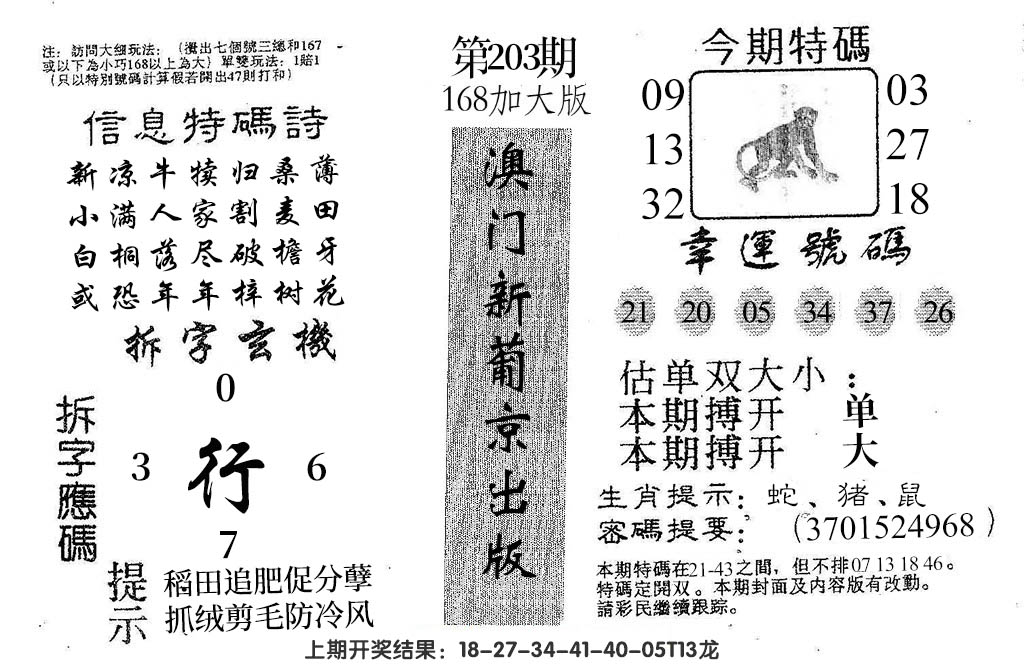 注：訪問大細玩法：（攪出七個號三總和167
或以下為小巧168以上為大）單雙玩法：1賠1
（只以特別號碼計算假若開出47則打和）
信息特碼詩
新凉牛犊归桑薄
小满人家割麦田
白桐落尽破檐牙
或恐年年梓树花
拆字玄機
0
3 行 6
7
拆字應碼
提示
稻田追肥促分孽
抓绒剪毛防冷风
第203期
168加大版
澳门新葡京出版
今期特碼
09 03
13 27
32 18
幸運號碼
21 20 05 34 37 26
估单双大小：
本期搏开 单
本期搏开 大
生肖提示：蛇、猪、鼠
密碼提要：（3701524968）
本期特碼在21-43之間，但不排07 13 18 46。
特碼定開双。本期封面及内容版有改動。
請彩民繼續跟踪。
上期开奖结果：18-27-34-41-40-05T13龙